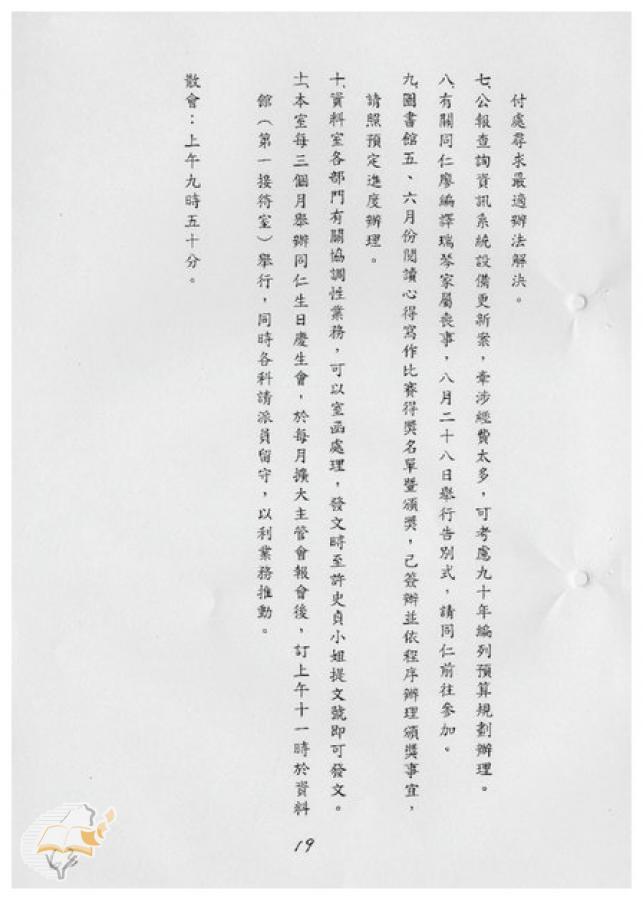 付處尋求最適辦法解決。
七、公報查詢資訊系統設備更新案,牽涉經費太多,可考慮九十年編列預算規劃辦理。
八、有關同仁廖編譯瑞琴家屬喪事,八月二十八日舉行告別式,請同仁前往參加。
九、圖書館五、六月份閱讀心得寫作比賽得獎名單暨頒獎,已簽辦並依程序辦理頒獎事宜,
請照預定進度辦理。
十、資料室各部門有關協調性業務,可以室函處理,發文時至許史貞小姐提文號即可發文。
十一、本室每三個月舉辦同仁生日慶生會,於每月擴大主管會報會後,訂上午十一時於資料
館(第一接待室)舉行,同時各科請派員留守,以利業務推動。
散會:上午九時五十分。
19